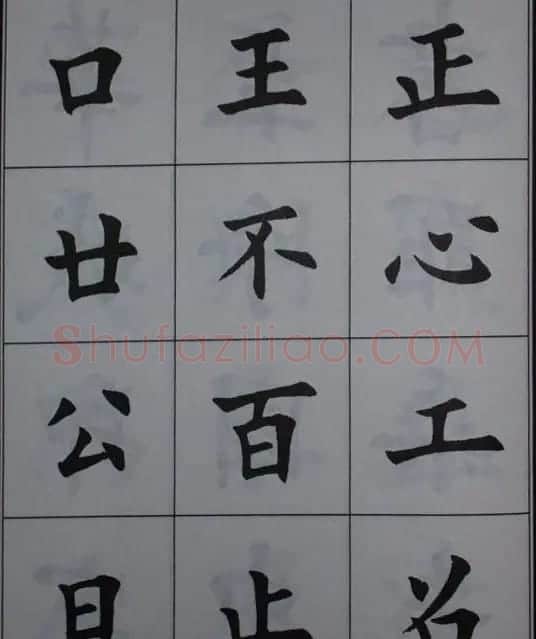 口 王 正
廿 不 心
Shufaziliao.COM
公 百 工